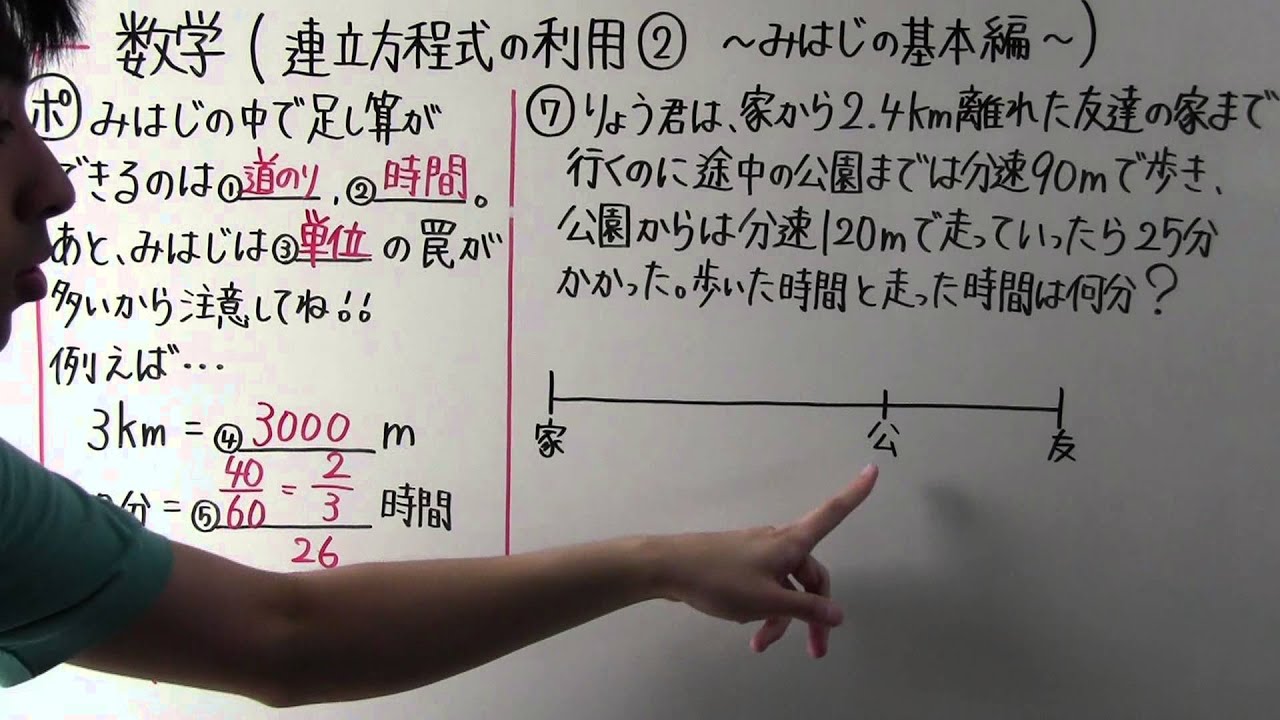 数学(連立方程式の利用② ～みはじの基本編～)
ポ みはじの中で足し算が
できるのは①道のり,②時間。
あと、みはじは③単位の罠が
多いから注意してね!!
例えば…
3km=④3000m
分=⑤40/60=2/3時間
26
⑦りょう君は、家から2.4km離れた友達の家まで
行くのに途中の公園までは分速90mで歩き、
公園からは分速120mで走っていったら25分
かかった。歩いた時間と走った時間は何分?
家 公 友